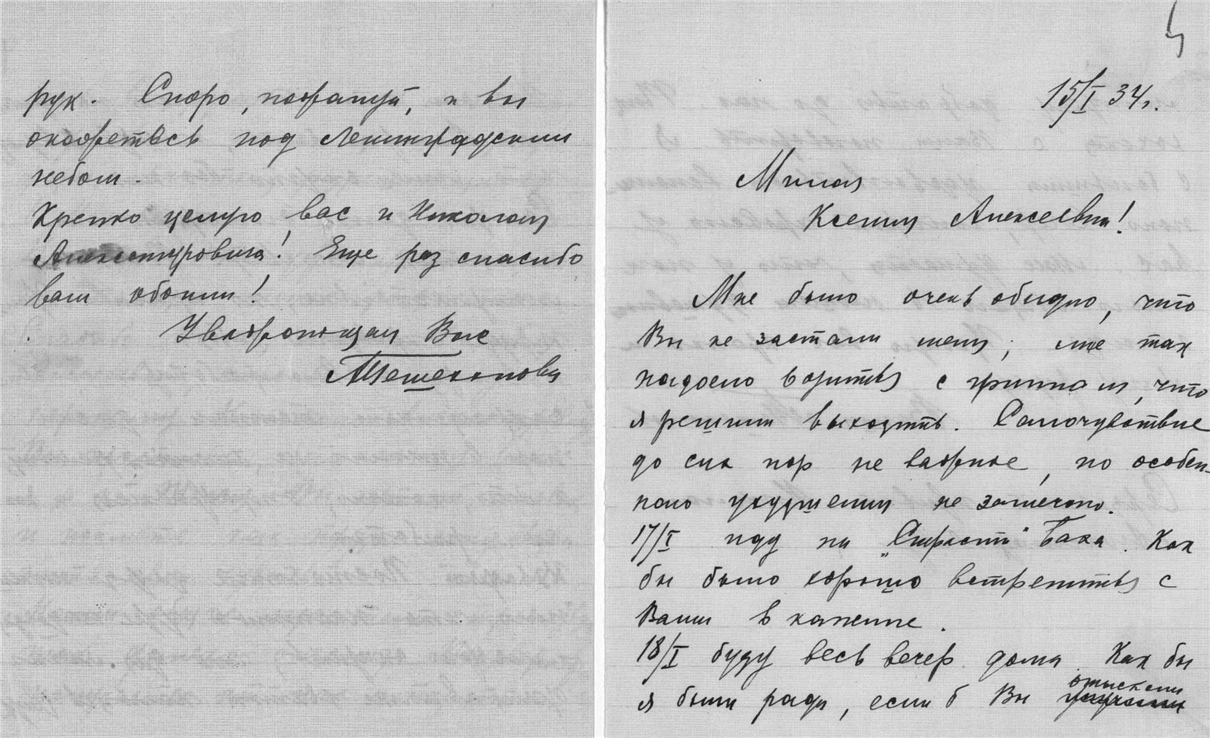 рук. Скоро, пожалуй, и вы
окажетесь под Ленинградским
небом.
Крепко целую вас и Николая
Александровича! Еще раз спасибо
вам обоим!
Уважающая Вас
15/I 34 г.
Милая
Ксения Алексеевна!
Мне было очень обидно, что
Вы не застали меня; мне так
надоело возиться с гриппом, что
я решила выходить. Самочувствие
до сих пор не важное, но особен-
ного ухудшения не замечаю.
17/I иду на „Страсти" Баха. Как
бы было хорошо встретиться с
Вами в капелле.
18/I буду весь вечер дома. Как бы
я была рада, если б Вы отыскали